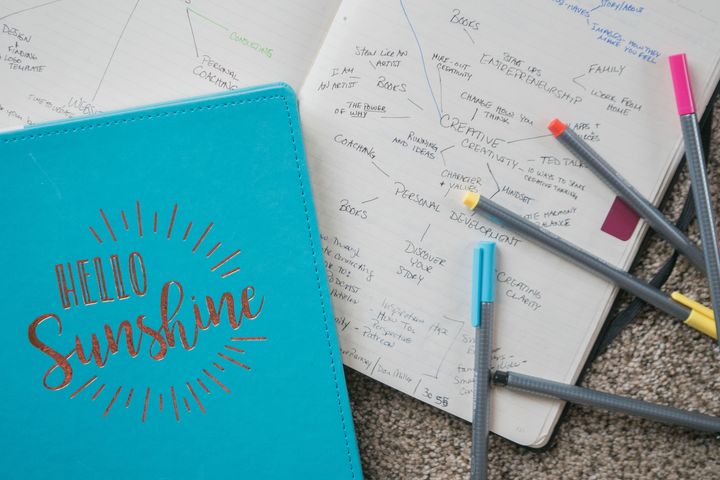 DESIGN
+
FINDING
LOGO
TEMPLATE
CONSULTING
PERSONAL
COACHING
WEBSITE
HELLO
Sunshine
BOOKS
STORY/ABOUT
IMAGES - HOW THEY
MAKE YOU FEEL
STEAL LIKE AN
ARTIST
I AM
AN ARTIST
BOOKS
THE POWER
OF WHY
COACHING
CREATIVITY
START UPS
ENTREPRENEURSHIP
FAMILY
WORK FROM
HOME
CHANGE HOW YOU
THINK
CREATIVE
CREATIVITY
RUNNING
AND IDEAS
APPS +
TED TALK
10 WAYS TO SPARK
CREATIVE THINKING
CHARACTER
+ VALUES
MINDSET
HARMONY
BALANCE
PERSONAL DEVELOPMENT
BOOKS
DISCOVER
YOUR
STORY
CREATING
CLARITY
Through
Connecting
Inspiration
- How To:
- Perspective
- Patreon
30